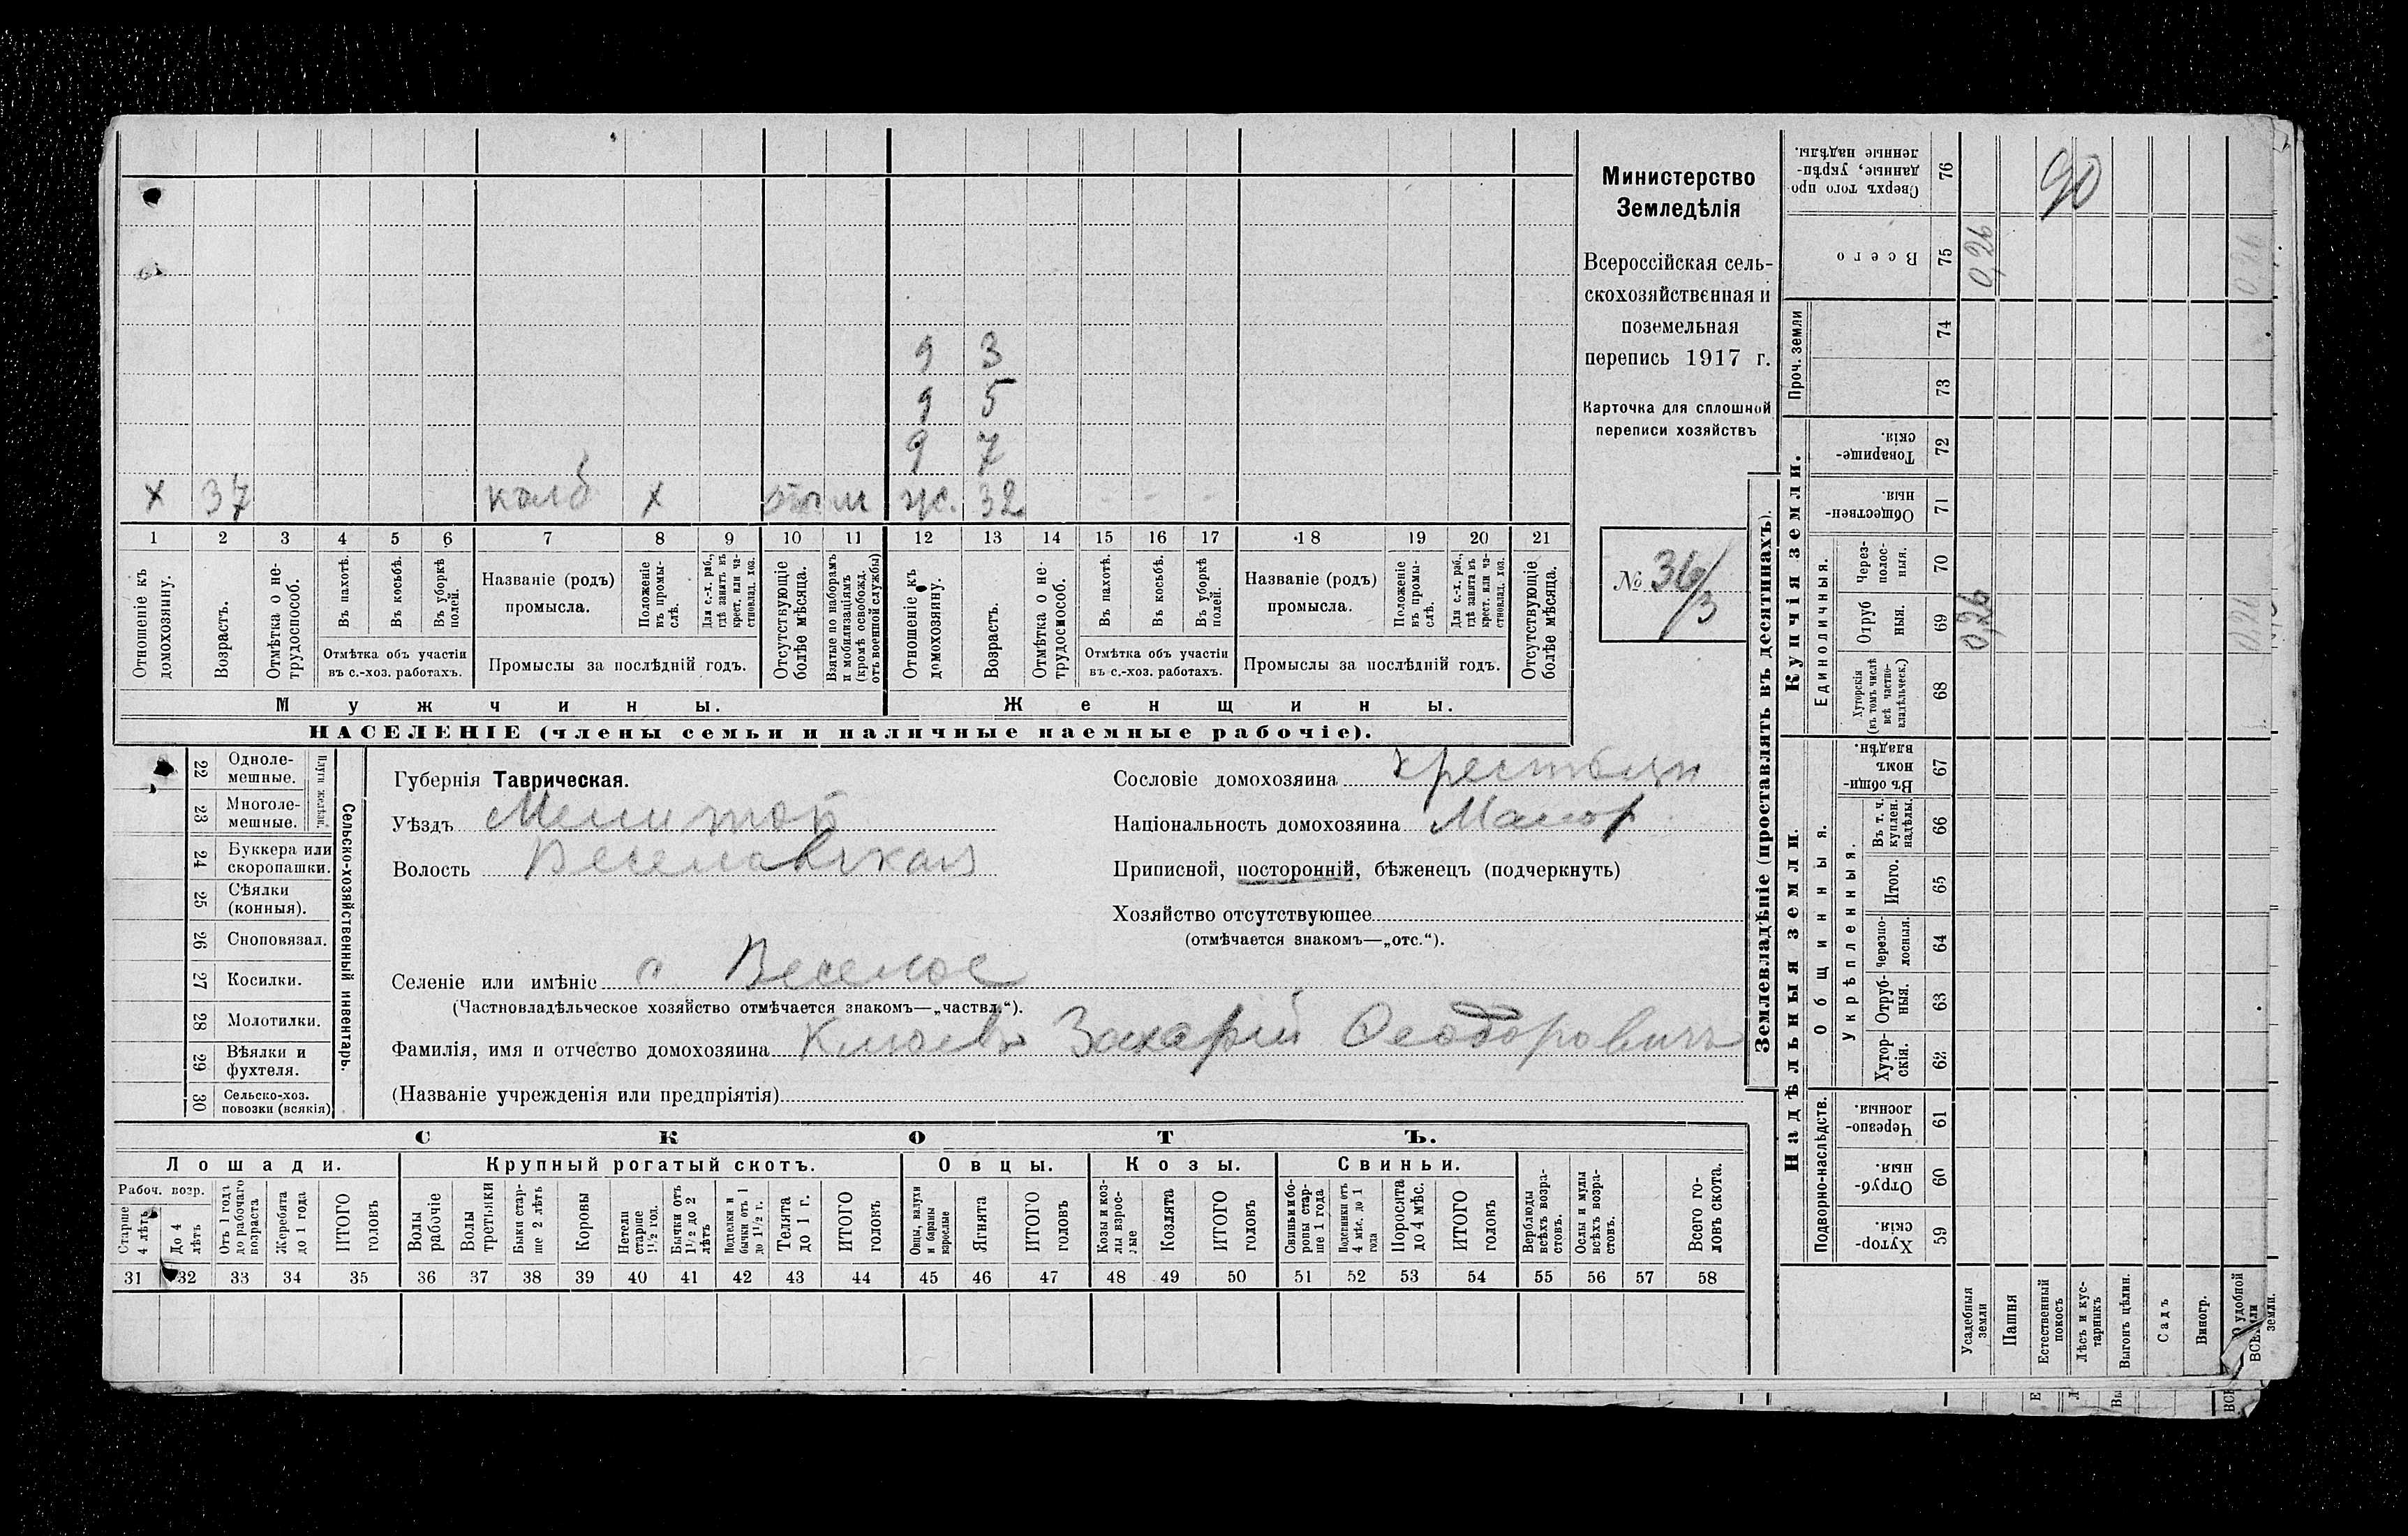 9 3
9 5
9 7
х 37 колб х ж. 32
1 2 3 4 5 6 7 8 9 10 11 12 13 14 15 16 17 18 19 20 21
Отношеніе къ домохозяину.
Возрастъ.
Отмѣтка о нетрудоспособ.
Въ пахотѣ.
Въ косьбѣ.
Въ уборкѣ полей.
Отмѣтка объ участіи въ с.-хоз. работахъ.
Названіе (родъ) промысла.
Положеніе въ промыслѣ.
Для с.-х. раб., гдѣ занятъ въ крест. или частновлад. хоз.
Промыслы за послѣдній годъ.
Отсутствующіе болѣе мѣсяца.
Взятые по наборамъ и мобилизаціямъ (кромѣ освобожд. отъ военной службы)
Отношеніе къ домохозяину.
Возрастъ.
Отмѣтка о нетрудоспособ.
Въ пахотѣ.
Въ косьбѣ.
Въ уборкѣ полей.
Отмѣтка объ участіи въ с.-хоз. работахъ.
Названіе (родъ) промысла.
Положеніе въ промыслѣ.
Для с.-х. раб., гдѣ занята въ крест. или частновлад. хоз.
Промыслы за послѣдній годъ.
Отсутствующіе болѣе мѣсяца.
Мужчины. Женщины.
НАСЕЛЕНІЕ (члены семьи и наличные наемные рабочіе).
Министерство
Земледѣлія
Всероссійская сель-
скохозяйственная и
поземельная
перепись 1917 г.
Карточка для сплошной
переписи хозяйствъ
№ 36/3
22 Одноле-мешные.
23 Многоле-мешные.
Плуги желѣзн.
24 Буккера или скоропашки.
25 Сѣялки (конныя).
26 Сноповязал.
27 Косилки.
28 Молотилки.
29 Вѣялки и фухтеля.
30 Сельско-хоз. повозки (всякія)
Сельско-хозяйственный инвентарь.
Губернія Таврическая.
Уѣздъ Мелитоп
Волость Веселовская
Селеніе или имѣніе с Веселое
(Частновладѣльческое хозяйство отмѣчается знакомъ—„частвл.“).
Фамилія, имя и отчество домохозяина Клюевъ Захарій Феодоровичъ
(Названіе учрежденія или предпріятія)
Сословіе домохозяина крестьян
Національность домохозяина Малор
Приписной, посторонній, бѣженецъ (подчеркнуть)
Хозяйство отсутствующее
(отмѣчается знакомъ—„отс.“).
СКОТЪ.
Лошади. Крупный рогатый скотъ. Овцы. Козы. Свиньи.
Рабоч. возр.
Старше 4 лѣтъ
До 4 лѣтъ
Отъ 1 года до рабочаго возраста
Жеребята до 1 года
ИТОГО головъ
Волы рабочіе
Волы третьяки
Быки старше 2 лѣтъ
Коровы
Нетели старше 1½ год.
Бычки отъ 1½ до 2 лѣтъ
Подтелки и бычки отъ 1 до 1½ г.
Телята до 1 г.
ИТОГО головъ
Овцы, валухи и бараны взрослые
Ягнята
ИТОГО головъ
Козы и козлы взрослые
Козлята
ИТОГО головъ
Свиньи и боровы старше 1 года
Подсвинки отъ 4 мѣс. до 1 года
Поросята до 4 мѣс.
ИТОГО головъ
Верблюды всѣхъ возрастовъ.
Ослы и мулы всѣхъ возрастовъ.
Всего головъ скота.
31 32 33 34 35 36 37 38 39 40 41 42 43 44 45 46 47 48 49 50 51 52 53 54 55 56 57 58
Землевладѣніе (проставлять въ десятинахъ).
Надѣльныя земли.
Купчія земли.
Проч. земли
Подворно-наслѣдств.
Общинныя.
Укрѣпленныя.
Единоличныя.
Сверхъ того проданные, укрѣпленные надѣлы. 76 90
Всего 75 0,26
74
73
Товарищескія. 72
Общественныя. 71
Черезполосныя. 70
Отрубныя. 69 0,26
Хуторскія (въ томъ числѣ всѣ частновладѣльческ.) 68
Въ общинномъ владѣн. 67
Въ т. ч. куплен. надѣлы. 66
Итого. 65
Черезполосныя. 64
Отрубныя. 63
Хуторскія. 62
Черезполосныя. 61
Отрубныя. 60
Хуторскія. 59
Усадебныя земли
Пашня
Естественный покосъ
Лѣсъ и кустарникъ
Выгонъ цѣлин.
Садъ
Виногр.
удобной земли.